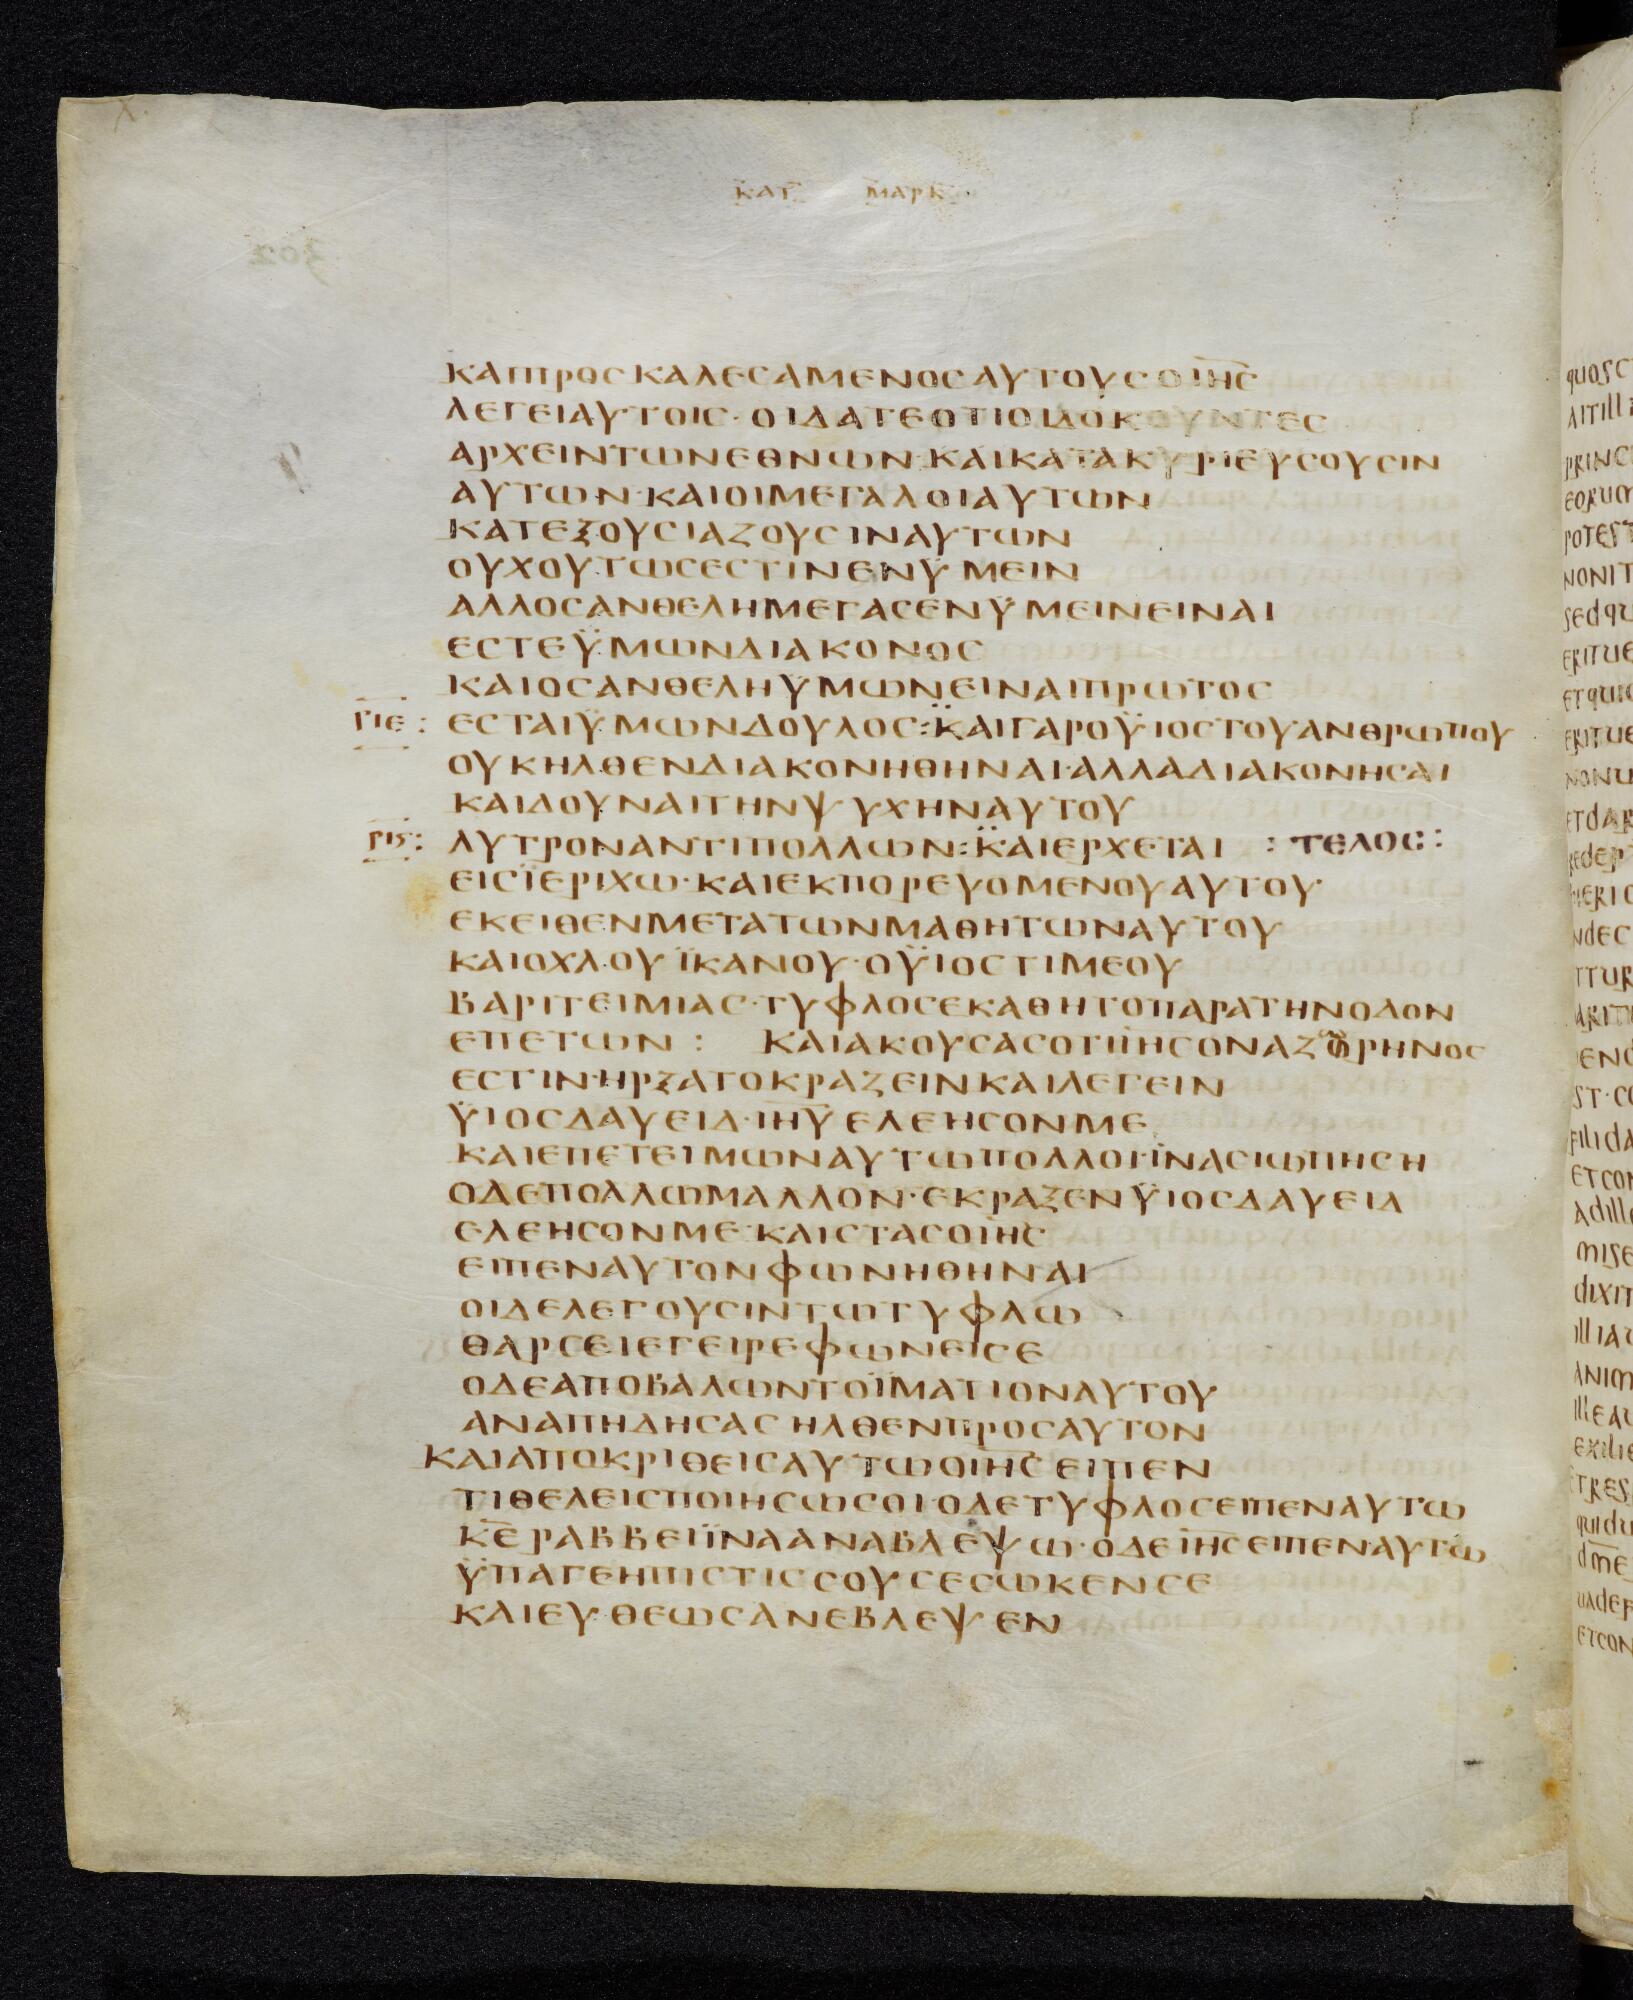 ΚΑΤ ΜΑΡΚ
302
ΚΑΙΠΡΟΣΚΑΛΕΣΑΜΕΝΟΣΑΥΤΟΥΣΟΙΗΣ
ΛΕΓΕΙΑΥΤΟΙΣ·ΟΙΔΑΤΕΟΤΙΟΙΔΟΚΟΥΝΤΕΣ
ΑΡΧΕΙΝΤΩΝΕΘΝΩΝ·ΚΑΙΚΑΤΑΚΥΡΙΕΥΣΟΥΣΙΝ
ΑΥΤΩΝ·ΚΑΙΟΙΜΕΓΑΛΟΙΑΥΤΩΝ
ΚΑΤΕΞΟΥΣΙΑΖΟΥΣΙΝΑΥΤΩΝ
ΟΥΧΟΥΤΩΣΕΣΤΙΝΕΝΫΜΕΙΝ
ΑΛΛΟΣΑΝΘΕΛΗΜΕΓΑΣΕΝΫΜΕΙΝΕΙΝΑΙ
ΕΣΤΕΫΜΩΝΔΙΑΚΟΝΟΣ
ΚΑΙΟΣΑΝΘΕΛΗΫΜΩΝΕΙΝΑΙΠΡΩΤΟΣ
ΡΙΕ : ΕΣΤΑΙΫΜΩΝΔΟΥΛΟΣ:ΚΑΙΓΑΡΟΫΙΟΣΤΟΥΑΝΘΡΩΠΟΥ
ΟΥΚΗΛΘΕΝΔΙΑΚΟΝΗΘΗΝΑΙ·ΑΛΛΑΔΙΑΚΟΝΗΣΑΙ
ΚΑΙΔΟΥΝΑΙΤΗΝΨΥΧΗΝΑΥΤΟΥ
ΡΙϚ: ΛΥΤΡΟΝΑΝΤΙΠΟΛΛΩΝ:ΚΑΙΕΡΧΕΤΑΙ : ΤΕΛΟΣ:
ΕΙΣΪΕΡΙΧΩ·ΚΑΙΕΚΠΟΡΕΥΟΜΕΝΟΥΑΥΤΟΥ
ΕΚΕΙΘΕΝΜΕΤΑΤΩΝΜΑΘΗΤΩΝΑΥΤΟΥ
ΚΑΙΟΧΛΟΥΪΚΑΝΟΥ·ΟΫΙΟΣΤΙΜΕΟΥ
ΒΑΡΙΤΕΙΜΙΑΣ·ΤΥΦΛΟΣΕΚΑΘΗΤΟΠΑΡΑΤΗΝΟΔΟΝ
ΕΠΕΤΩΝ : ΚΑΙΑΚΟΥΣΑΣΟΤΙΪΗΣΟΝΑΖΟΡΗΝΟΣ
ΕΣΤΙΝ·ΗΡΞΑΤΟΚΡΑΖΕΙΝΚΑΙΛΕΓΕΙΝ
ΫΙΟΣΔΑΥΕΙΔ·ΙΗΥΕΛΕΗΣΟΝΜΕ
ΚΑΙΕΠΕΤΕΙΜΩΝΑΥΤΩΠΟΛΛΟΙ·ΪΝΑΣΙΩΠΗΣΗ
ΟΔΕΠΟΛΛΩΜΑΛΛΟΝ·ΕΚΡΑΞΕΝΫΙΟΣΔΑΥΕΙΔ
ΕΛΕΗΣΟΝΜΕ·ΚΑΙΣΤΑΣΟΪΗΣ
ΕΙΠΕΝΑΥΤΟΝΦΩΝΗΘΗΝΑΙ
ΟΙΔΕΛΕΓΟΥΣΙΝΤΩΤΥΦΛΩ
ΘΑΡΣΕΙΕΓΕΙΡΕΦΩΝΕΙΣΕ
ΟΔΕΑΠΟΒΑΛΩΝΤΟΪΜΑΤΙΟΝΑΥΤΟΥ
ΑΝΑΠΗΔΗΣΑΣΗΛΘΕΝΠΡΟΣΑΥΤΟΝ
ΚΑΙΑΠΟΚΡΙΘΕΙΣΑΥΤΩΟΙΗΣΕΙΠΕΝ
ΤΙΘΕΛΕΙΣΠΟΙΗΣΩΣΟΙ·ΟΔΕΤΥΦΛΟΣΕΙΠΕΝΑΥΤΩ
ΚΕΡΑΒΒΕΙΪΝΑΑΝΑΒΛΕΨΩ·ΟΔΕΪΗΣΕΙΠΕΝ·ΑΥΤΩ
ΫΠΑΓΕΗΠΙΣΤΙΣΣΟΥΣΕΣΩΚΕΝΣΕ
ΚΑΙΕΥΘΕΩΣΑΝΕΒΛΕΨΕΝ